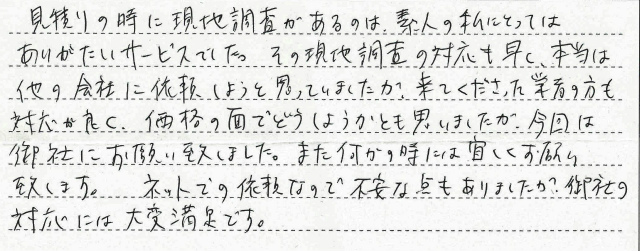 見積りの時に現地調査があるのは、素人の私にとっては
ありがたいサービスでした。その現地調査の対応も早く、本当は
他の会社に依頼しようと思っていましたが、来てくださった業者の方も
対応が良く、価格の面でどうしようかとも思いましたが、今回は
御社にお願い致しました。また何かの時には宜しくお願い
致します。 ネットでの依頼なので不安な点もありましたが、御社の
対応には大変満足です。